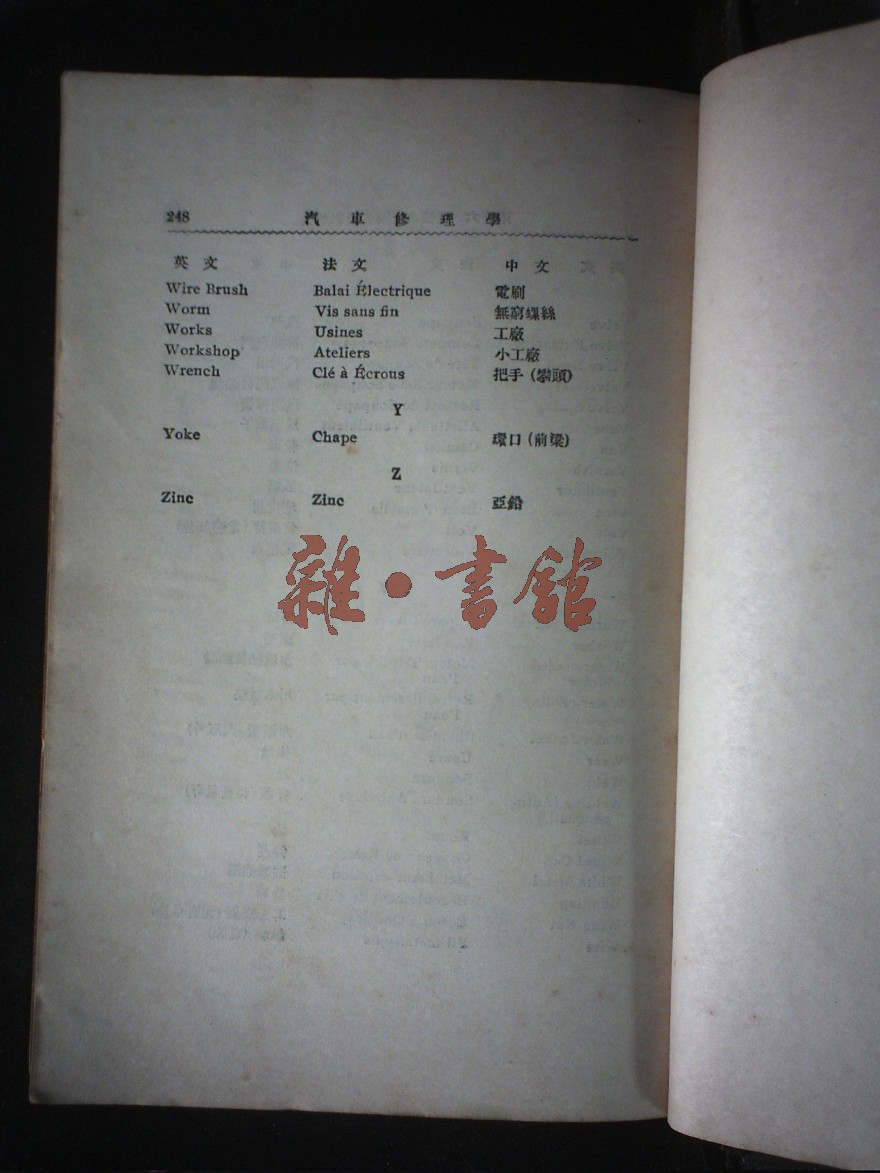 248 汽車修理學
英文 法文 中文
Wire Brush Balai Électrique 電刷
Worm Vis sans fin 無窮螺絲
Works Usines 工廠
Workshop Ateliers 小工廠
Wrench Clé à Écrous 把手(攀頭)
Y
Yoke Chape 環口(前梁)
Z
Zinc Zinc 亞鉛
雜·書館